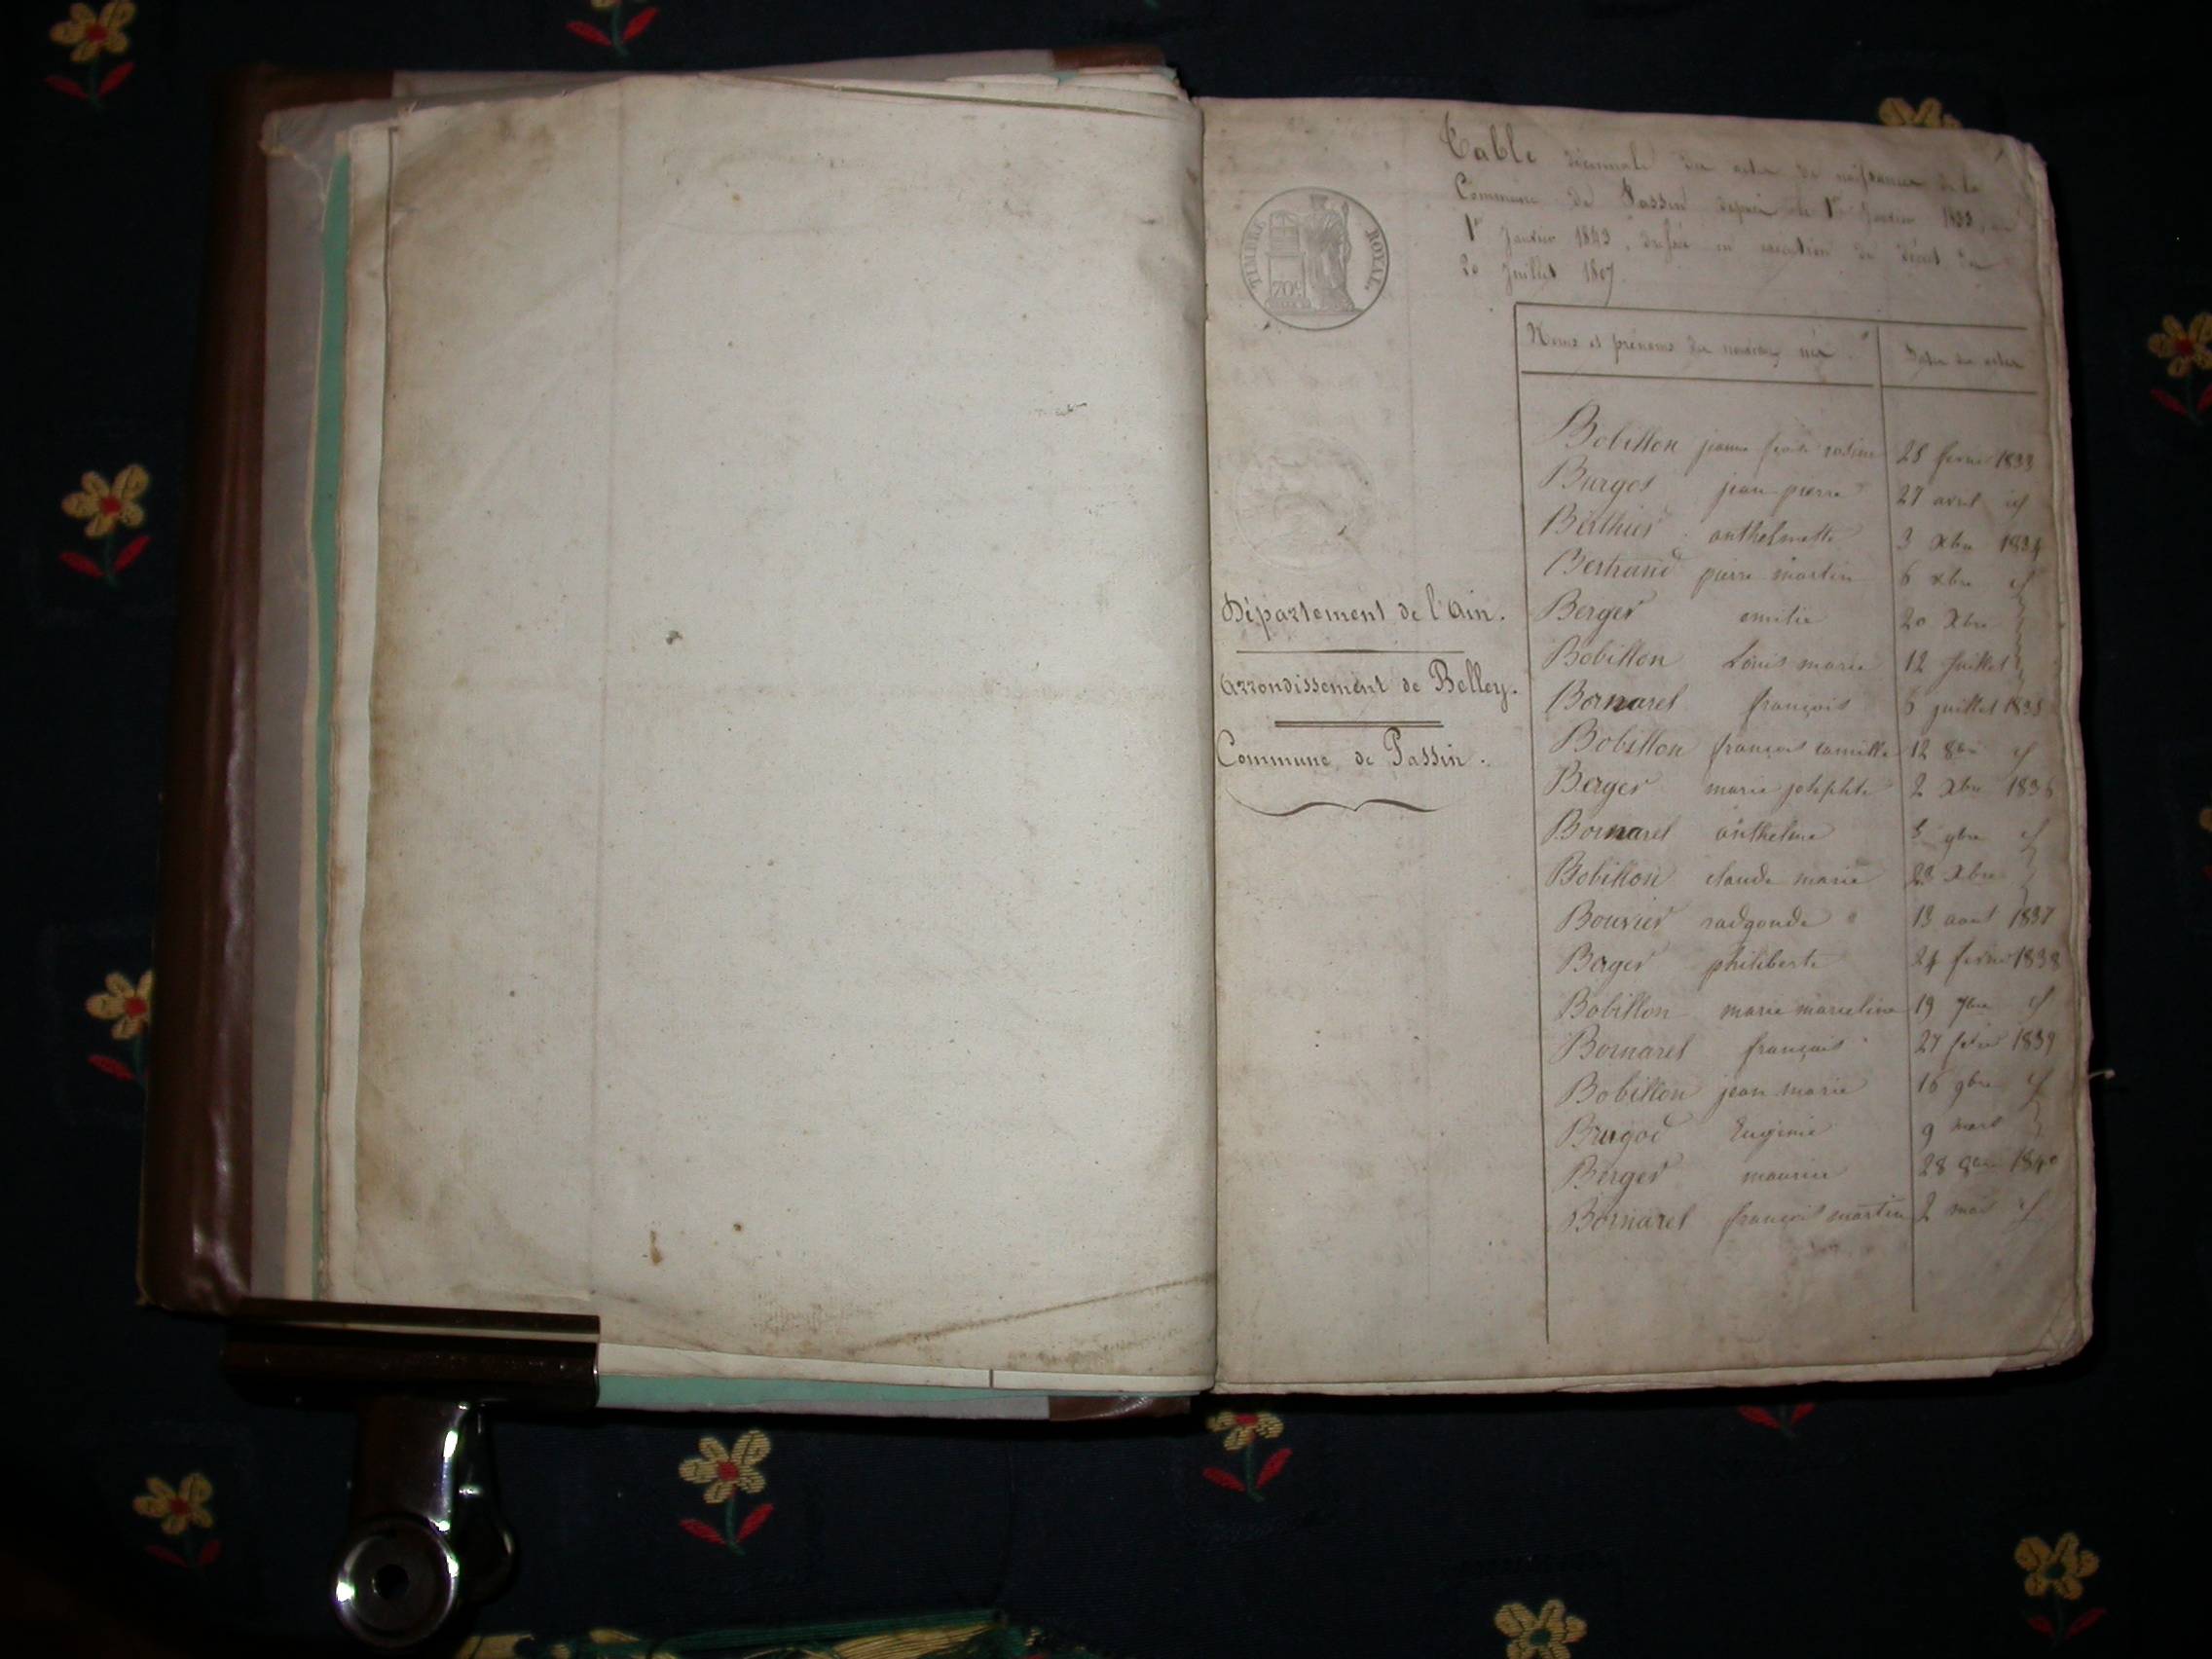 Table décennale des actes de naissances de la
Commune de Passin depuis le 1er Janvier 1833, au
1er Janvier 1843, dressée en exécution du décret du
20 Juillet 1807.
TIMBRE ROYAL.
70c
Noms et prénoms des nouveaux nés.
Dates des actes
Département de l'Ain.
Arrondissement de Belley.
Commune de Passin.
Bobillon jeanne rosine 25 fevrier 1833
Burgod jean pierre 27 avril id
Berthier anthelmette 3 Xbre 1834
Bertrand pierre martin 6 xbre id
Berger emilie 20 Xbre
Bobillon Louis marie 12 Juillet
Bornarel françois 5 juillet 1835
Bobillon françois camille 12 8bre id
Berger marie josephte 2 Xbre 1836
Bornarel anthelme 5 9bre id
Bobillon claude marie 23 Xbre
Bouvier radgonde 13 aout 1837
Berger philiberte 24 fevrier 1838
Bobillon marie marceline 19 7bre id
Bornarel françois 27 fevrier 1839
Bobillon jean marie 16 9bre id
Brugod Eugénie 9 mars
Berger maurice 28 8bre 1840
Bornarel françois martin 2 mai id